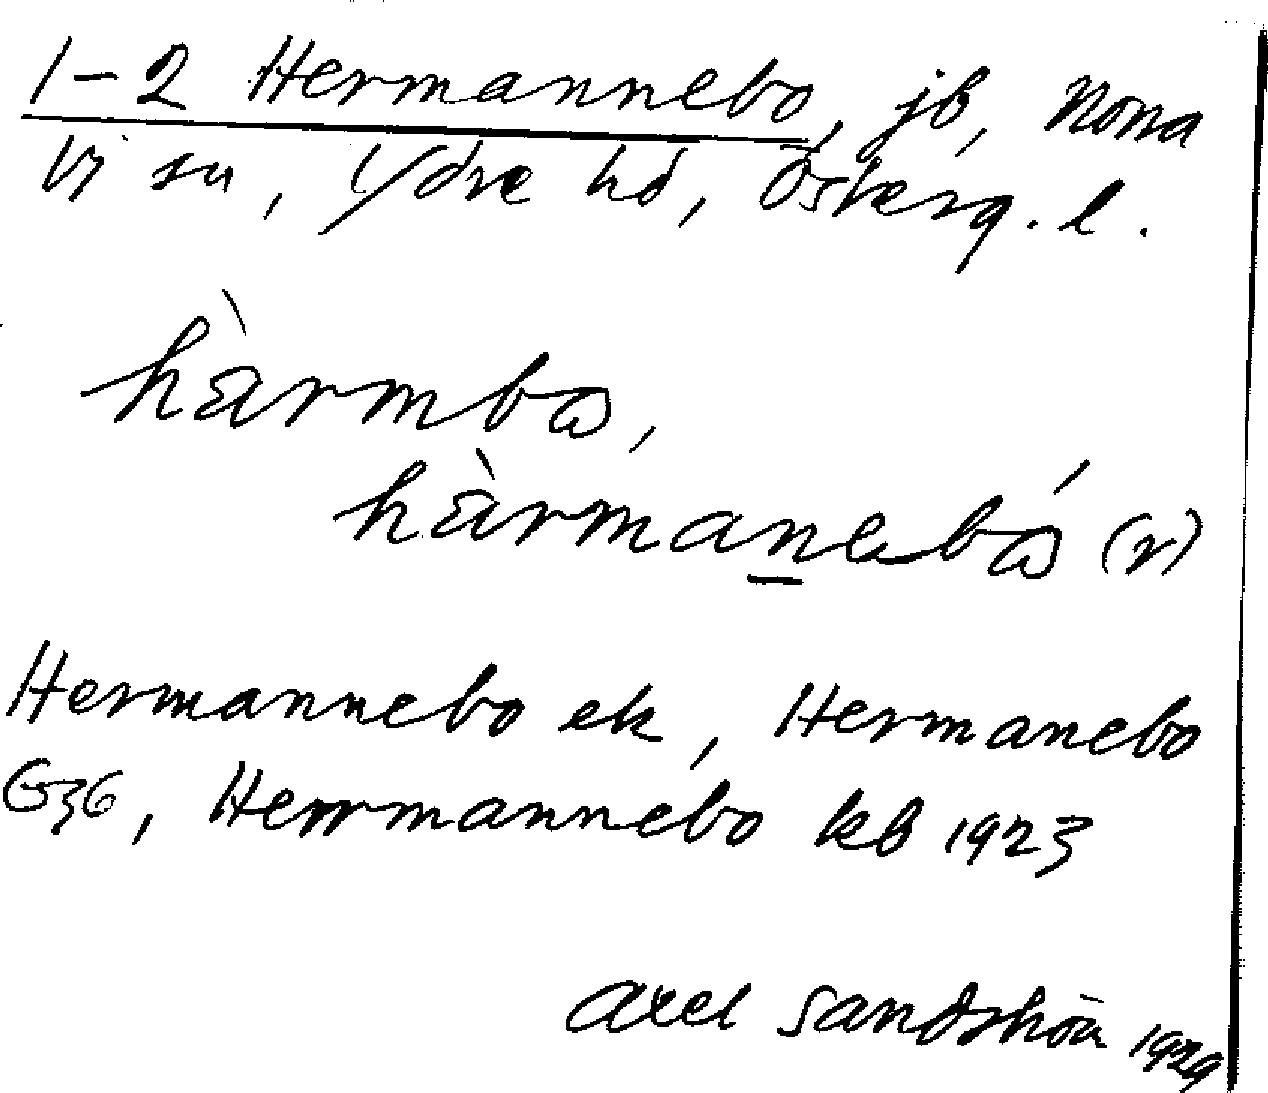 1-2 Hermannebo, jb, Norra
Vi sn, Ydre hd, Österg. l.
hàrmbo,
hàrmanebó (r)
Hermannebo ek, Hermanebo
G36, Herrmannebo kb 1923
Axel Sandshöö 1929